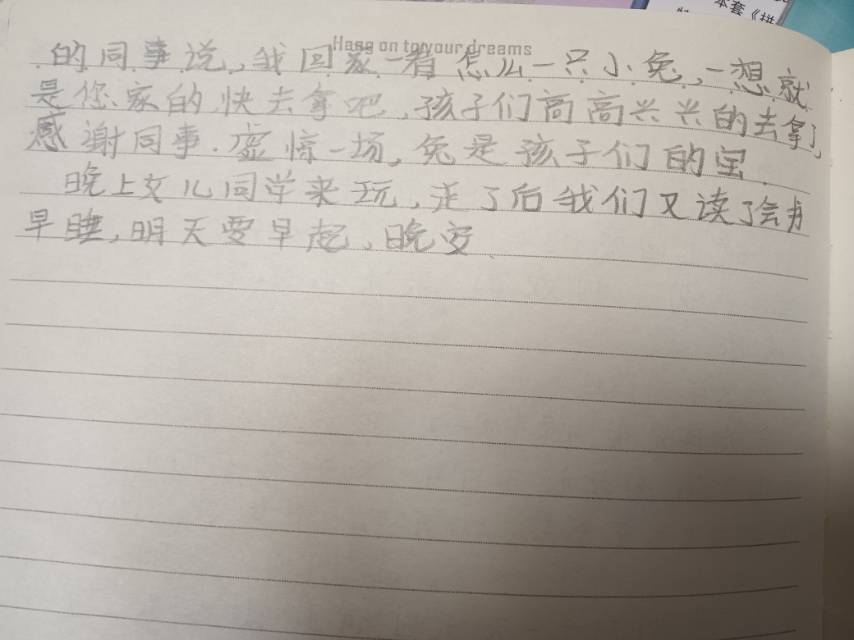 本套《拼
Hang on to your dreams
的同事说,我回家一看怎么一只小兔,一想就
是您家的快去拿吧,孩子们高高兴兴的去拿了,
感谢同事.虚惊一场,兔是孩子们的宝.
晚上女儿同学来玩,走了后我们又读了会书
早睡,明天要早起,晚安、